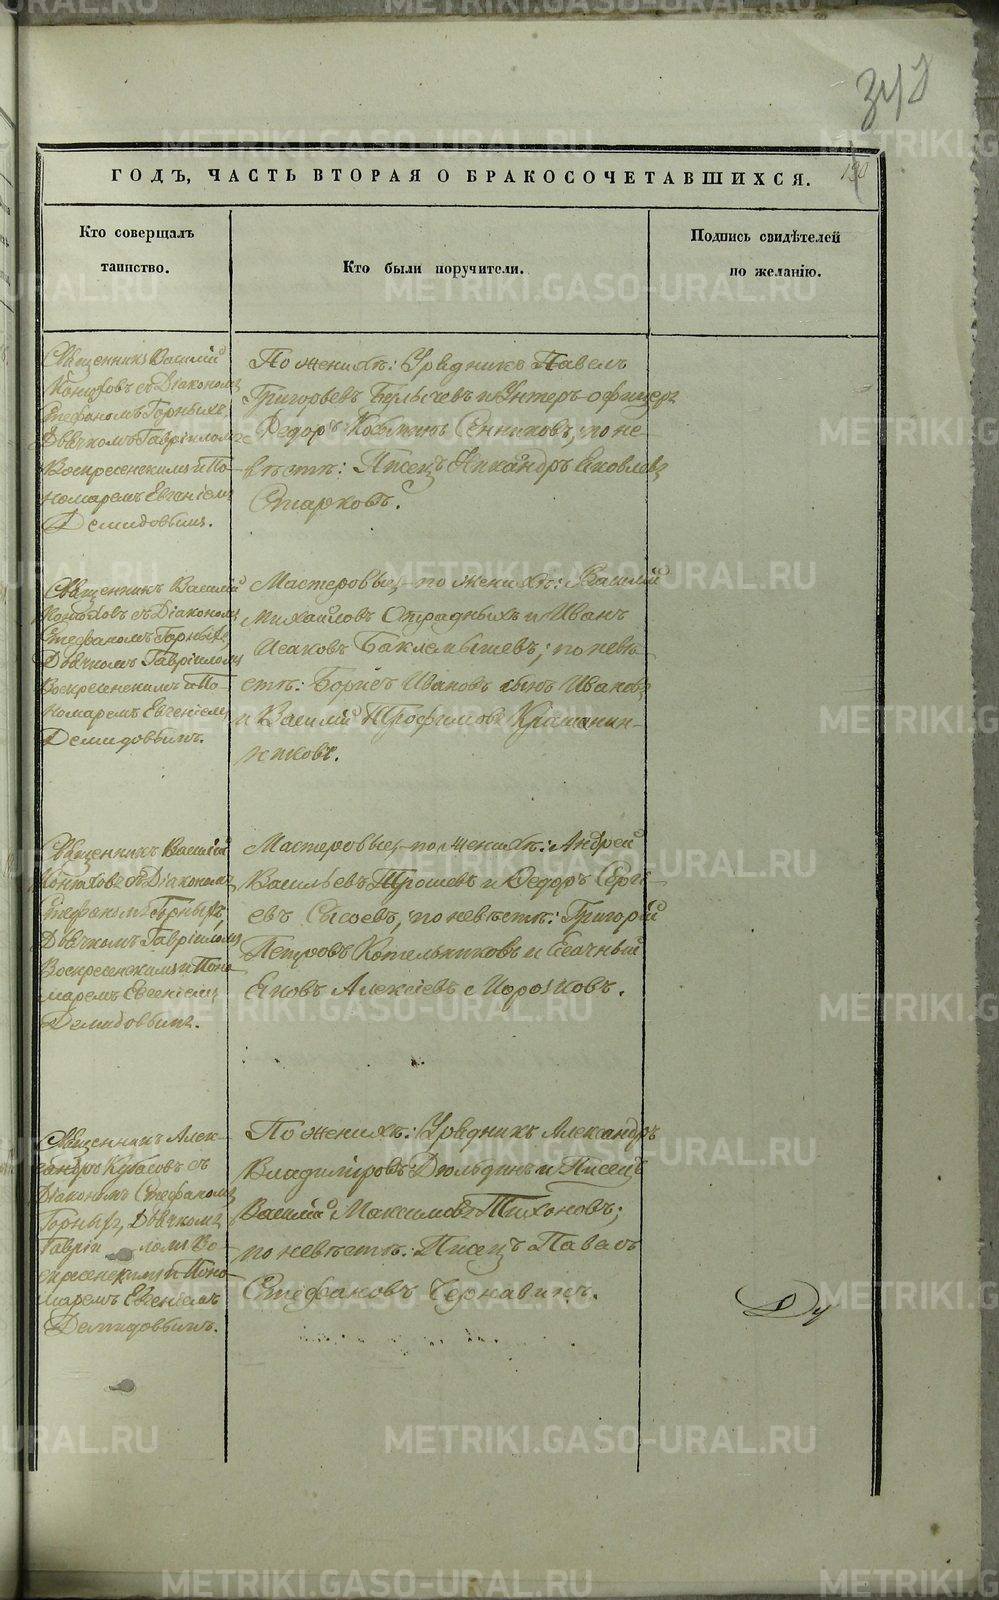 342
130
ГОДЪ, ЧАСТЬ ВТОРАЯ О БРАКОСОЧЕТАВШИХСЯ.
Кто совершалъ
таинство.
Кто были поручители.
Подпись свидѣтелей
по желанію.
Священникъ Василій
съ Діакономъ
Стефаномъ Горныхъ,
Дьячкомъ Гавріиломъ
Воскресенскимъ и По-
номаремъ Евгеніемъ
Демидовымъ.
По женихѣ: Урядникъ Павелъ
Григорьевъ Булычевъ и Унтеръ-офицеръ
Ѳедоръ Козьминъ Санниковъ; по не-
вѣстѣ: Писецъ Никандръ Яковлевъ
Старковъ.
Священникъ Василій
съ Діакономъ
Стефаномъ Горныхъ,
Дьячкомъ Гавріиломъ
Воскресенскимъ и По-
номаремъ Евгеніемъ
Демидовымъ.
Мастеровые, по женихѣ: Василій
Михайловъ Отрадныхъ и Иванъ
Исаковъ Баклемышевъ; по невѣ-
стѣ: Борисъ Ивановъ Ивановъ
и Василій Трофимовъ
Священникъ Василій
съ Діакономъ
Стефаномъ Горныхъ,
Дьячкомъ Гавріиломъ
Воскресенскимъ и Поно-
маремъ Евгеніемъ
Демидовымъ.
Мастеровые, по женихѣ: Андрей
Васильевъ Трошевъ и Ѳедоръ Серге-
евъ Сысоевъ; по невѣстѣ: Григорій
Петровъ Котельниковъ и
Яковъ Алексѣевъ Морозковъ.
Священникъ Алек-
сандръ Кубасовъ съ
Діакономъ Стефаномъ
Горныхъ, Дьячкомъ
Гавріиломъ Во-
скресенскимъ и Поно-
маремъ Евгеніемъ
Демидовымъ.
По женихѣ: Урядникъ Александръ
Владиміровъ Дюльдинъ и Писецъ
Василій Максимовъ Тихоновъ;
по невѣстѣ: Писецъ Павелъ
Стефановъ Чернавинъ.
METRIKI.GASO-URAL.RU